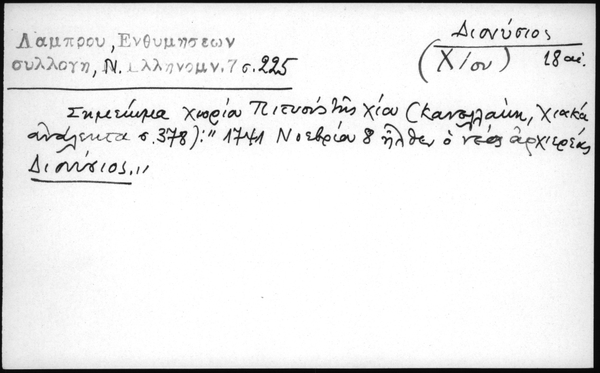 Διονύσιος
Λαμπρου, Ενθυμησεων
(Χίου) 18 αι.
συλλογη, Ν. Ελληνομν. 7 σ. 225
Σημείωμα χωρίο Πιτυούς της Χίου (Κανελλάκη, Χιακά
ανάλεκτα σ. 378): "1741 Νοεβρίου 8 ἦλθεν ὁ νέος ἀρχιερέας
Διονύσιος."